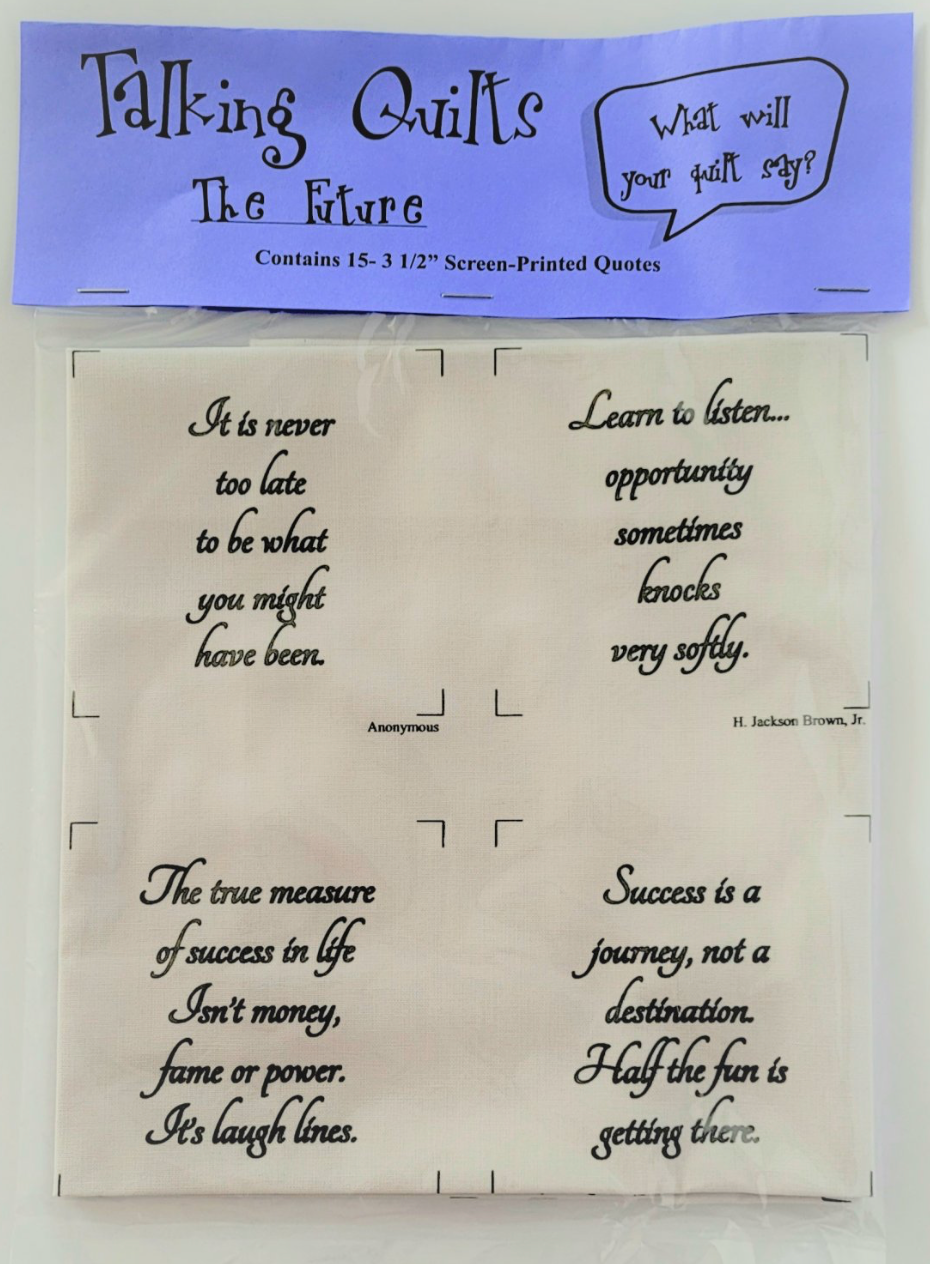 Talking Quilts
The Future
What will
your quilt say?
Contains 15- 3 1/2” Screen-Printed Quotes
It is never
too late
to be what
you might
have been.
Anonymous
Learn to listen...
opportunity
sometimes
knocks
very softly.
H. Jackson Brown, Jr.
The true measure
of success in life
Isn't money,
fame or power.
It's laugh lines.
Success is a
journey, not a
destination.
Half the fun is
getting there.